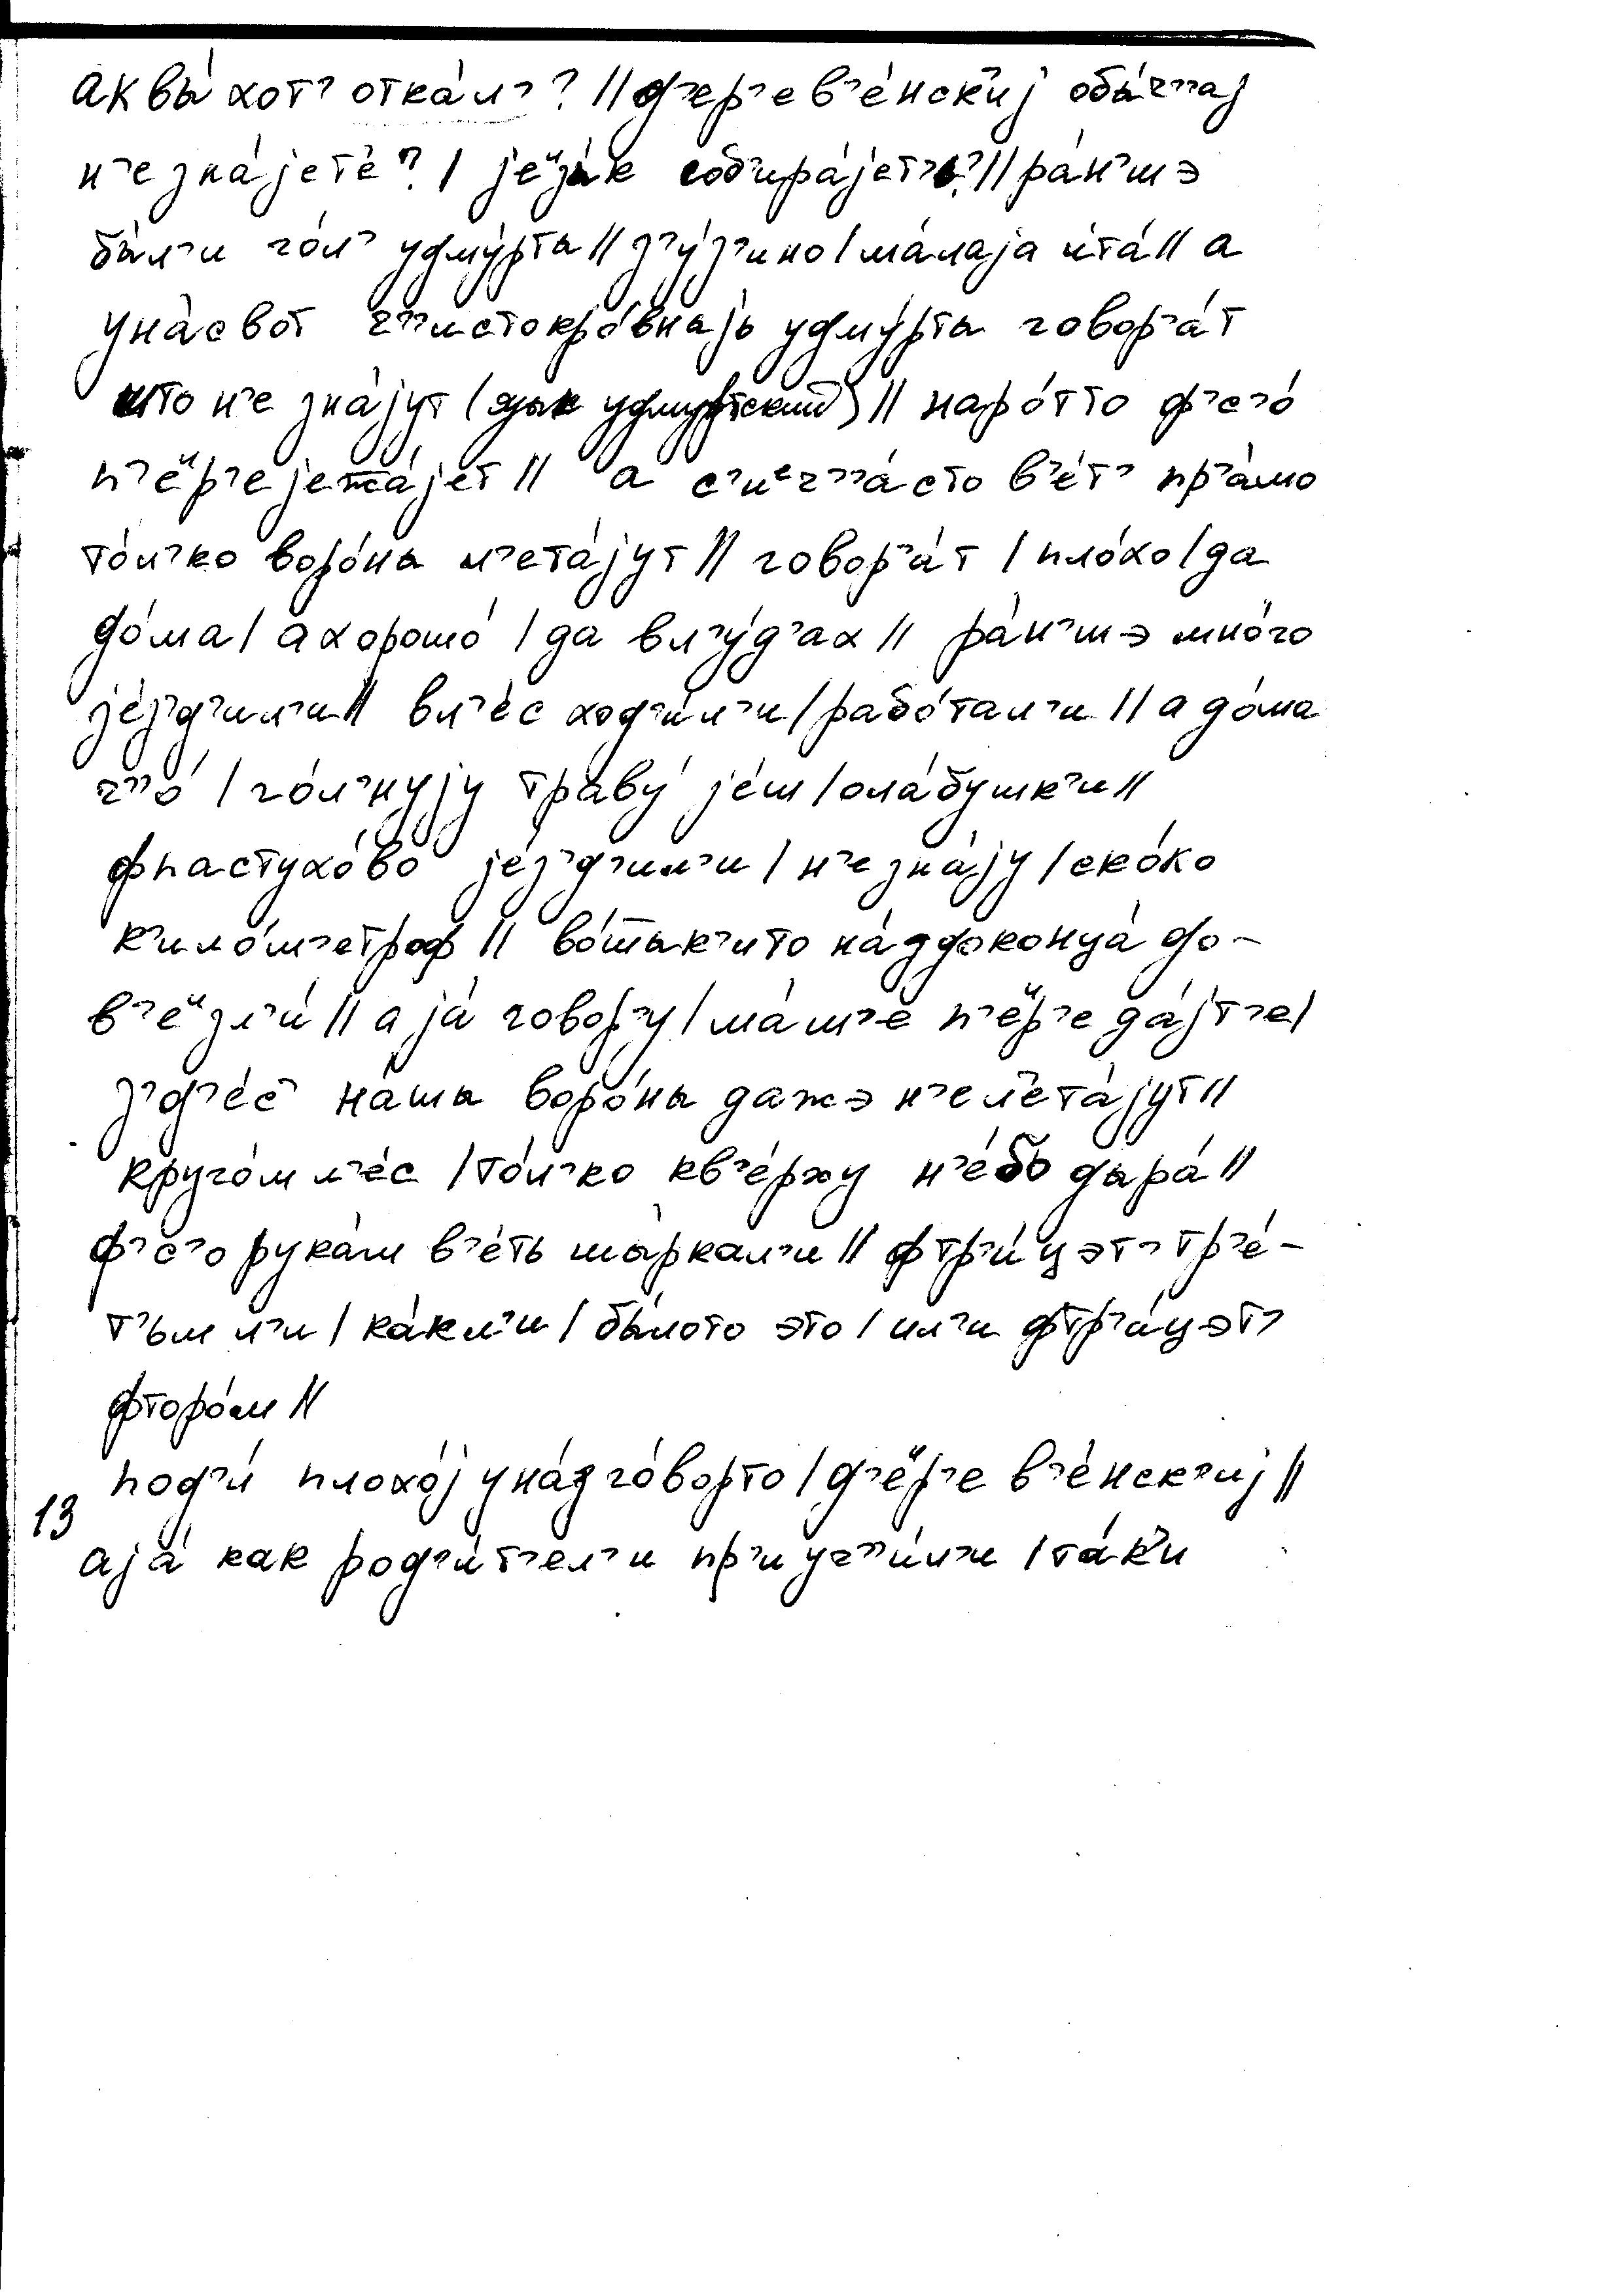 аквы́ хот’ отка́л’? // д’ер’ев’е́нск’иј обы́ч’’ај
н’е зна́јет’е? / јеизы́к соб’ира́јет’ь? // ра́н’шэ
бы́л’и го́л’ удму́рты // з’у́з’ино / ма́лаја ита́ // а
уна́свот ч’’истокро́внаjь удму́рты говор’а́т
што н’е зна́јут (язык удмуртский) // наро́тто ф’с’о́
п’еир’ејежа́јет // а с’иеч’’а́сто в’е́т’ пр’а́мо
то́л’ко воро́ны л’ета́јут // говор’а́т / пло́хо / да
до́ма / а хорошо́ / да вл’у́д’ах // ра́н’шэ мно́го
је́з’д’ил’и // вл’е́с ход’и́л’и / рабо́тал’и // а до́ма
ч’’о́ / го́л’нују траву́ је́ш / ола́бушк’и //
фпастухо́во је́з’д’ил’и / н’е зна́ју / ско́ко
к’ило́м’етроф // во́тык’ито на́здоконца́ до-
в’еизл’и́ // а ја́ говор’у / ма́м’е п’еир’еда́јт’е /
з’д’е́с’ на́шы воро́ны дажэ н’ел’ета́јут //
круго́м л’е́с / то́л’ко кв’е́рху н’е́бь дыра́ //
ф’с’о рука́м в’е́ть шы́ркал’и // фтр’и́цэт’ тр’е́-
т’ьм л’и / ка́кл’и / бы́лото это / ил’и фтр’и́цэт’
фторо́м //
под’и́ плохо́ј уна́зго́ворто / д’еир’ев’е́нск’иј //
13 аја́ как род’и́т’ел’и пр’иуч’’и́л’и / та́к’и